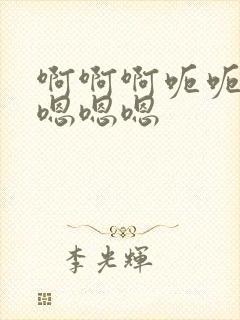 啊啊啊呃呃
嗯嗯嗯
李光輝